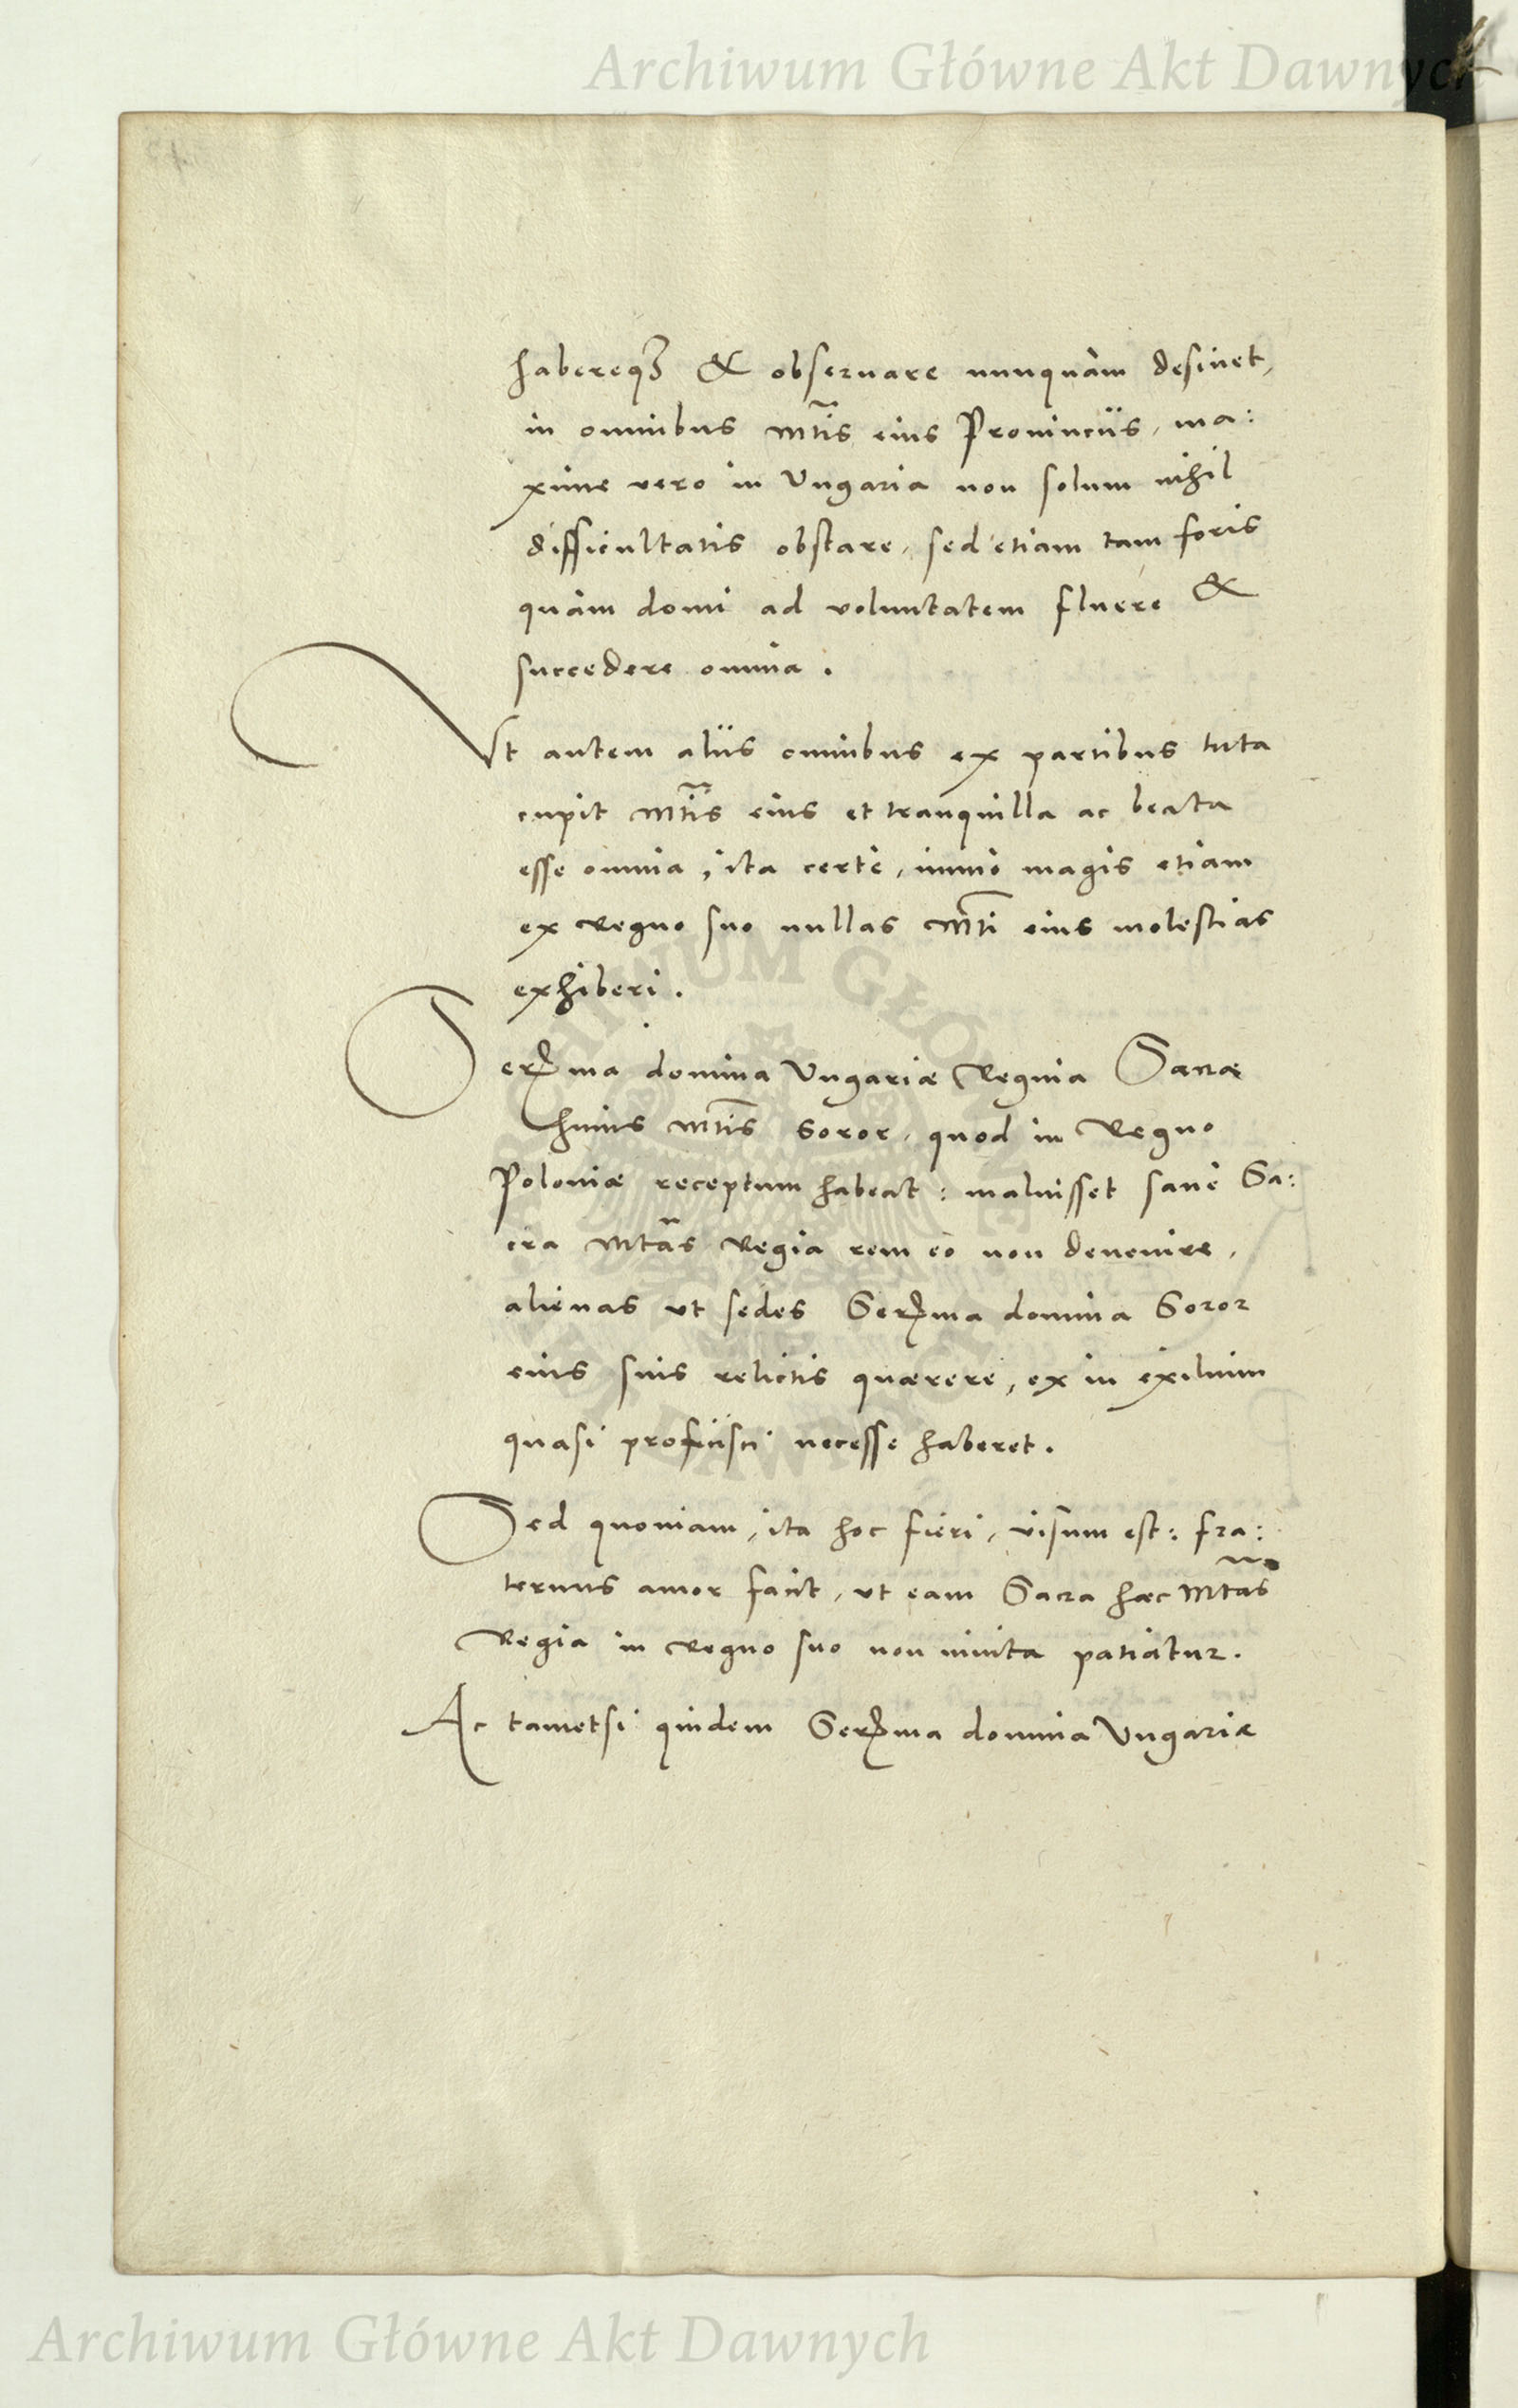 Archiwum Główne Akt Dawnych
habereq3 & obseruare nunquàm desinet,
in omnibus Mtis eius Prouincijs, ma:
xime vero in Vngaria non solum nihil
difficultatis obstare, sed etiam tam foris
quàm domi ad voluntatem fluere &
succedere omnia.
Vt autem alijs omnibus ex partibus tuta
cupit Mtis eius et tranquilla ac beata
esse omnia, ita certè, immò magis etiam
ex Regno suo nullas Mti eius molestias
exhiberi.
Serma domina Vngariæ Regina Sacræ
huius Mtis Soror, quod in Regno
Poloniæ receptum habeat: maluisset sanè Sa:
cra Mtas Regia rem eò non deuenire,
alienas vt sedes Serma domina Soror
eius suis relictis quærere, ex in exilium
quasi proficisci necesse haberet.
Sed quoniam, ita hoc fieri, visum est: fra:
ternus amor facit, vt eam Sacra hæc Mtas
Regia in Regno suo non inuita patiatur.
Ac tametsi quidem Serma domina Vngariæ
Archiwum Główne Akt Dawnych